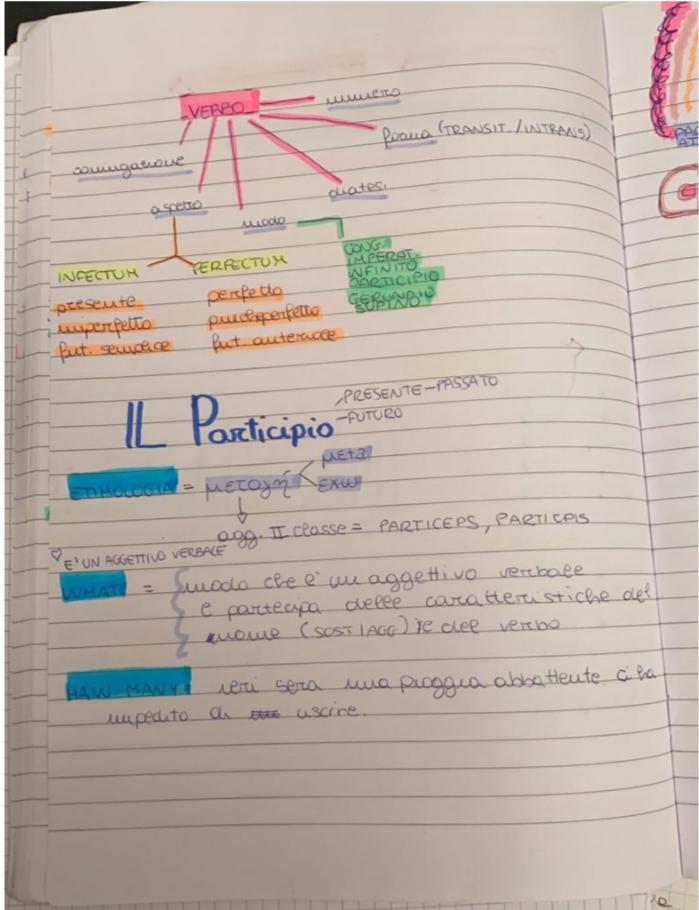 VERBO
numero
forma (TRANSIT. / INTRANS)
coniugazione
diatesi
aspetto
modo
CONG.
IMPERAT.
INFINITO
PARTICIPIO
GERUNDIO
SUPINO
INFECTUM
PERFECTUM
presente
perfetto
imperfetto
piuccheperfetto
fut. semplice
fut. anteriore
IL Participio
PRESENTE-PASSATO
-FUTURO
ETIMOLOGIA = μετοχή
μετα
EXW
agg. II classe = PARTICEPS, PARTICIPIS
E' UN AGGETTIVO VERBALE
WHAT = modo che è un aggettivo verbale
e partecipa delle caratteristiche del
nome (SOST/AGG) e del verbo
HAW MANY: ieri sera una pioggia abbattente ci ha
impedito di uscire.